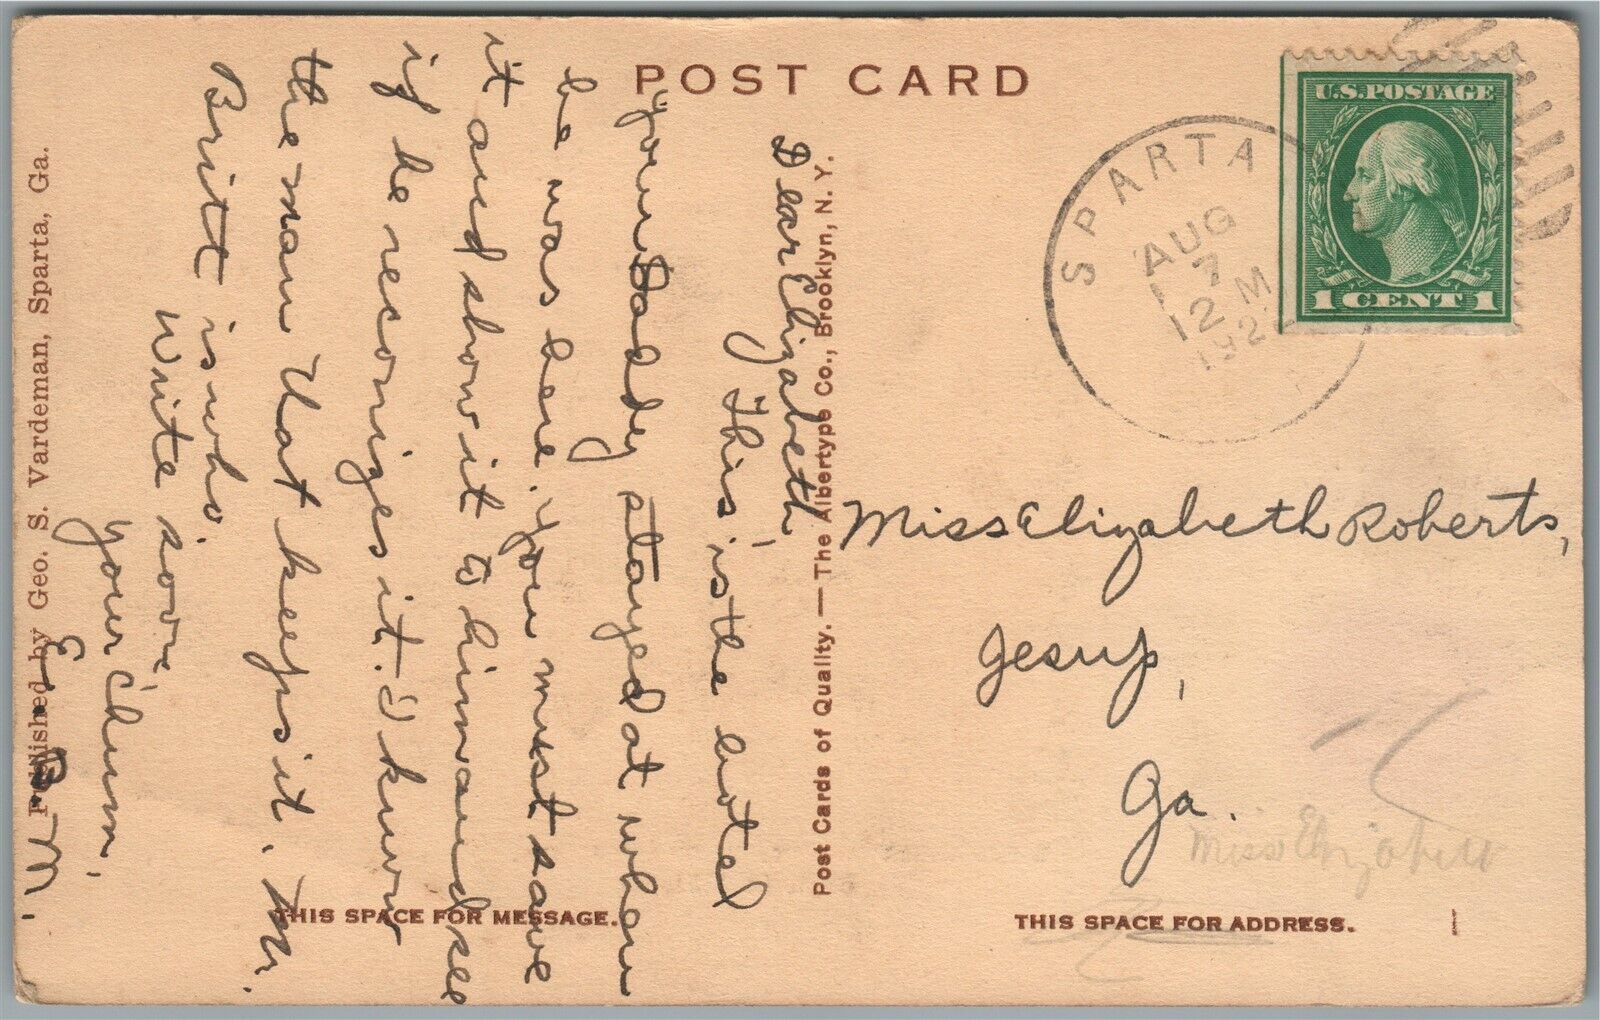 POST CARD
U.S. POSTAGE
1 CENT 1
SPARTA
AUG
7
12 M
192
Dear Elizabeth,
"This" is the hotel
"your Daddy stayed at when
he was here. you must save
it and show it to him and see
if he reconizes it. I know
the man that keeps it. Mr.
Britt is who.
Write soon,
your "chum,
E. D. M.
Miss Elizabeth Roberts,
Jesup,
Ga.
Miss Elizabeth
Post Cards of Quality. — The Albertype Co., Brooklyn, N. Y.
Published by Geo. S. Vardeman, Sparta, Ga.
THIS SPACE FOR MESSAGE.
THIS SPACE FOR ADDRESS.